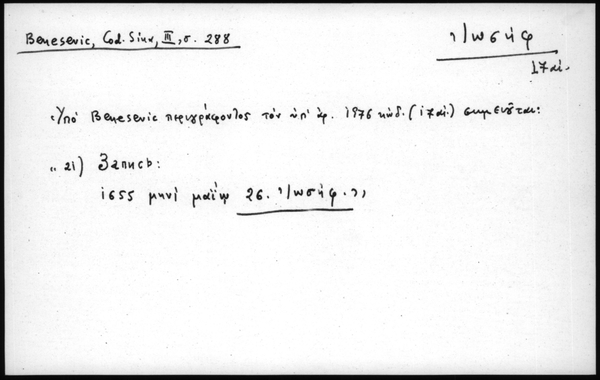 Benesevic, Cod. Sina, III, σ. 288
Ἰωσήφ
17 αἰ.
Ὑπὸ Benesevic περιγράφοντος τὸν ὑπ' ἀρ. 1976 κώδ. (17 αἰ.) σημειοῦται:
«21) Запись:
1655 μηνὶ μαΐῳ 26. Ἰωσήφ.»